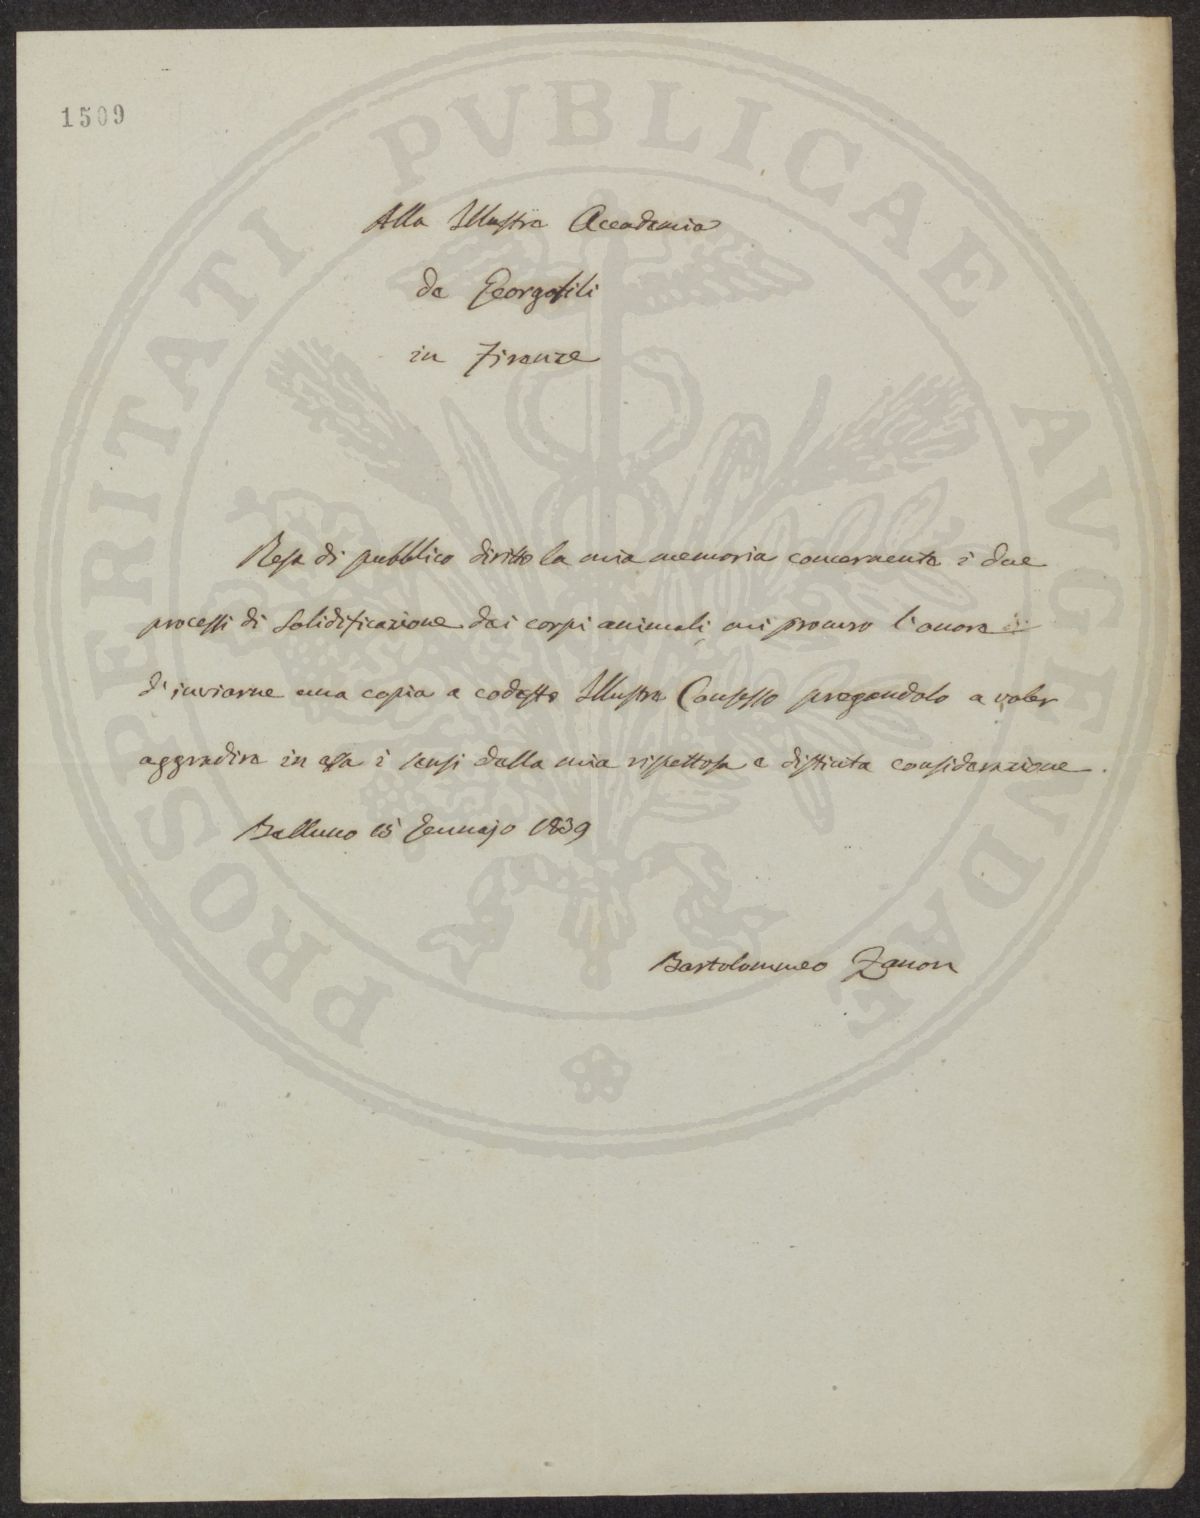 1509
PROSPERITATI PVBLICAE AVGENDAE
Alla Illustre Accademia
de Georgofili
in Firenze
Resa di pubblico diritto la mia memoria concernente i due
processi di solidificazione dei corpi animali mi procuro l'onore di
d'inviarne una copia a codesto Illustre Consesso pregandolo a voler
aggradire in essa i sensi della mia rispettosa e distinta considerazione.
Belluno 15 Gennajo 1839
Bartolommeo Zanon